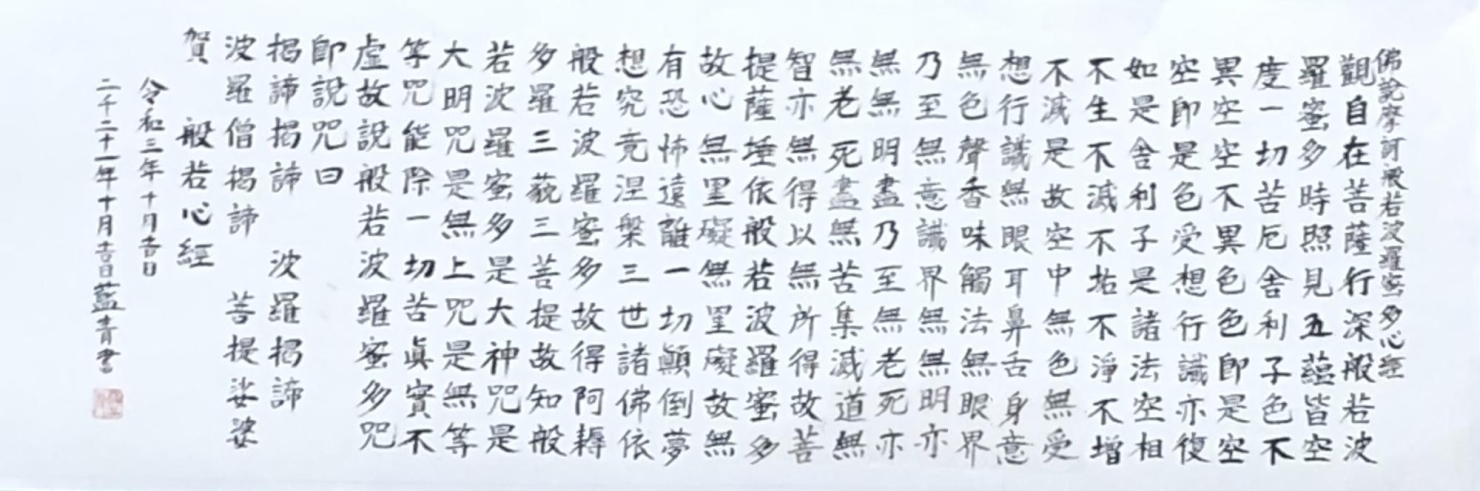 佛說摩訶般若波羅蜜多心經
觀自在菩薩行深般若波
羅蜜多時照見五蘊皆空
度一切苦厄舍利子色不
異空空不異色色即是空
空即是色受想行識亦復
如是舍利子是諸法空相
不生不滅不垢不淨不增
不減是故空中無色無受
想行識無眼耳鼻舌身意
無色聲香味觸法無眼界
乃至無意識界無無明亦
無無明盡乃至無老死亦
無老死盡無苦集滅道無
智亦無得以無所得故菩
提薩埵依般若波羅蜜多
故心無罣礙無罣礙故無
有恐怖遠離一切顛倒夢
想究竟涅槃三世諸佛依
般若波羅蜜多故得阿耨
多羅三藐三菩提故知般
若波羅蜜多是大神咒是
大明咒是無上咒是無等
等咒能除一切苦眞實不
虛故說般若波羅蜜多咒
即說咒曰
揭諦揭諦 波羅揭諦
波羅僧揭諦 菩提娑婆
賀 般若心經
令和三年十月吉日
二千二十一年十月吉日藍青書